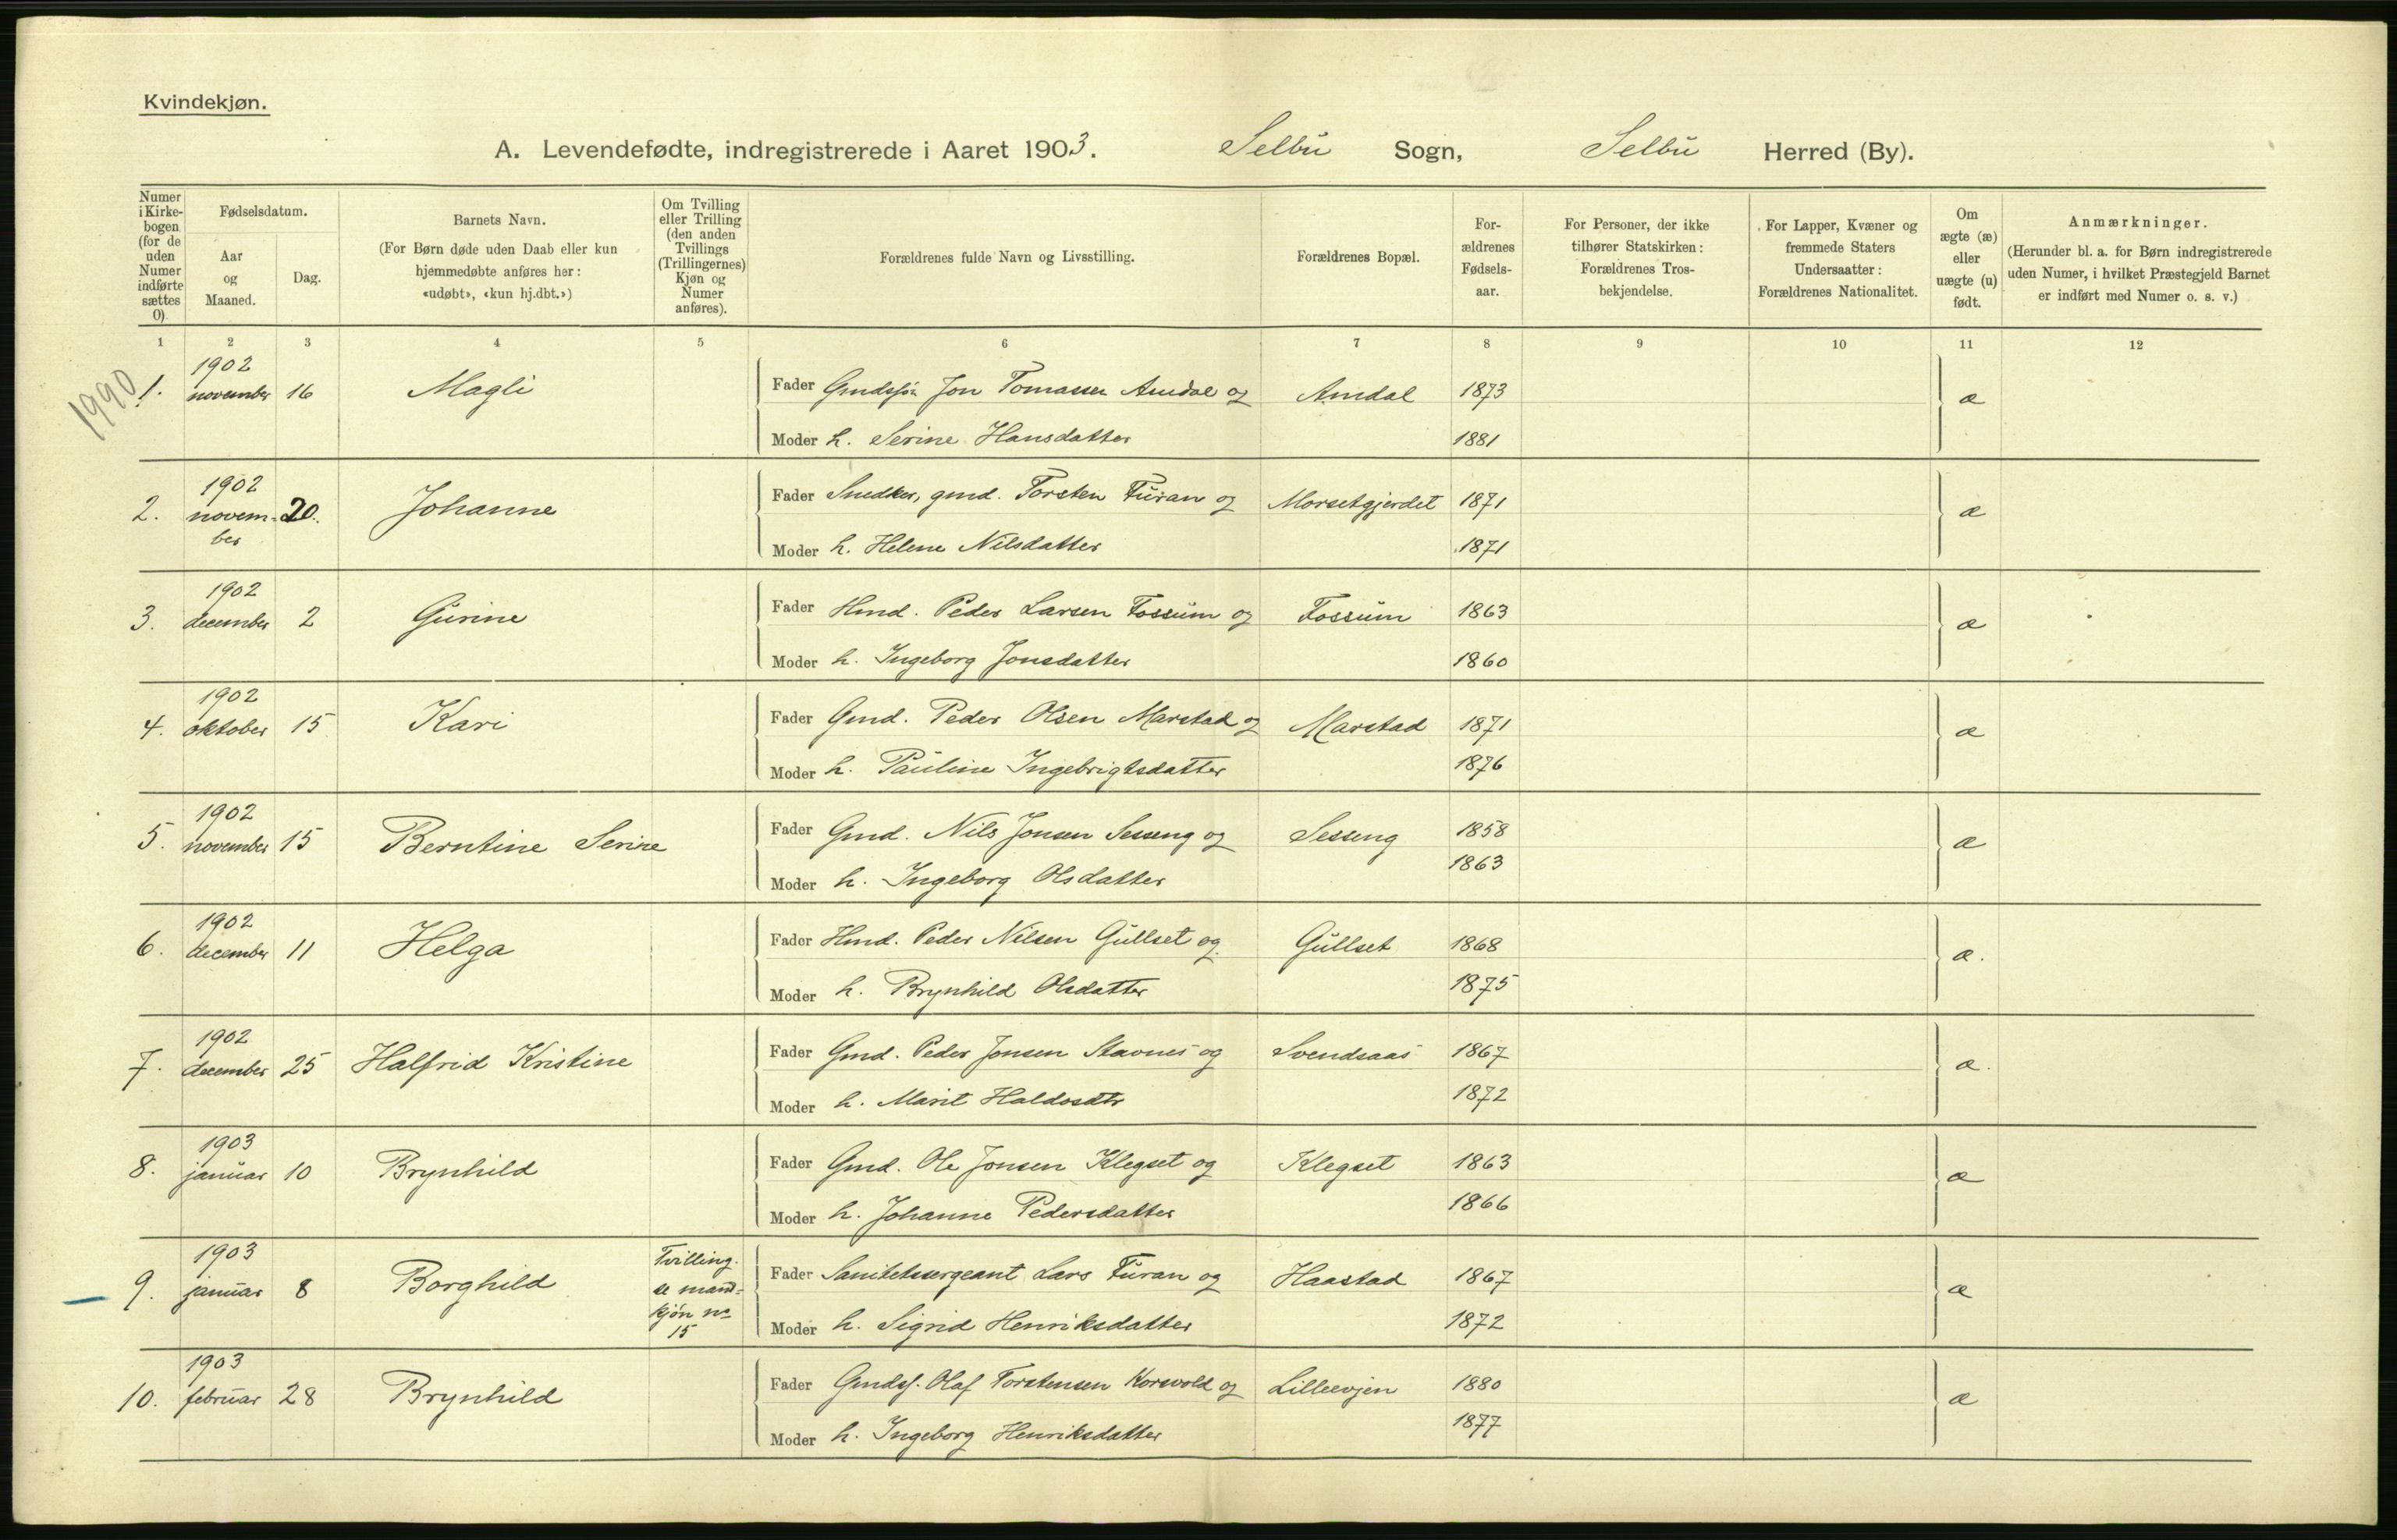 Kvindekjøn.
A. Levendefødte, indregistrerede i Aaret 1903. Selbu Sogn, Selbu Herred (By).
Numer i Kirkebogen (for de uden Numer indførte sættes 0).
Fødselsdatum.
Aar og Maaned.
Dag.
Barnets Navn.
(For Børn døde uden Daab eller kun hjemmedøbte anføres her: «udøbt», «kun hj.dbt.»)
Om Tvilling eller Trilling (den anden Tvillings (Trillingernes) Kjøn og Numer anføres).
Forældrenes fulde Navn og Livsstilling.
Forældrenes Bopæl.
Forældrenes Fødselsaar.
For Personer, der ikke tilhører Statskirken: Forældrenes Trosbekjendelse.
For Lapper, Kvæner og fremmede Staters Undersaatter: Forældrenes Nationalitet.
Om ægte (æ) eller uægte (u) født.
Anmærkninger.
(Herunder bl. a. for Børn indregistrerede uden Numer, i hvilket Præstegjeld Barnet er indført med Numer o. s. v.)
1 2 3 4 5 6 7 8 9 10 11 12
1990
1. 1902 november 16 Magli Fader Gmdssøn Jon Tomassen Amdal og Amdal 1873 æ
Moder h. Serine Hansdatter 1881
2. 1902 november 20. Johanne Fader Snedker, gmd. Torsten Furan og Morsetgjerdet 1871 æ
Moder h. Helene Nilsdatter 1871
3. 1902 december 2 Gurine Fader Hmd. Peder Larsen Fossum og Fossum 1863 æ
Moder h. Ingeborg Jonsdatter 1860
4. 1902 oktober 15 Kari Fader Gmd. Peder Olsen Marstad og Marstad 1871 æ
Moder h. Pauline Ingebrigtsdatter 1876
5. 1902 november 15 Berntine Serine Fader Gmd. Nils Jonsen Sesseng og Sesseng 1858 æ
Moder h. Ingeborg Olsdatter 1863
6. 1902 december 11 Helga Fader Hmd. Peder Nilsen Gullset og Gullset 1868 æ.
Moder h. Brynhild Olsdatter 1875
7. 1902 december 25 Halfrid Kristine Fader Gmd. Peder Jonsen Stavnes og Svendsaas 1867 æ.
Moder h. Marit Haldosdtr 1872
8. 1903 januar 10 Brynhild Fader Gmd. Ole Jonsen Klegset og Klegset 1863 æ
Moder h. Johanne Pedersdatter 1866
9. 1903 januar 8 Borghild Tvilling. se mandkjøn no 15 Fader Sanitetssergeant Lars Furan og Haastad 1867 æ
Moder h. Sigrid Henriksdatter 1872
10. 1903 februar 28 Brynhild Fader Gmdss. Olaf Torstensen Korsvold og Lilleevjen 1880 æ
Moder h. Ingeborg Henriksdatter 1877